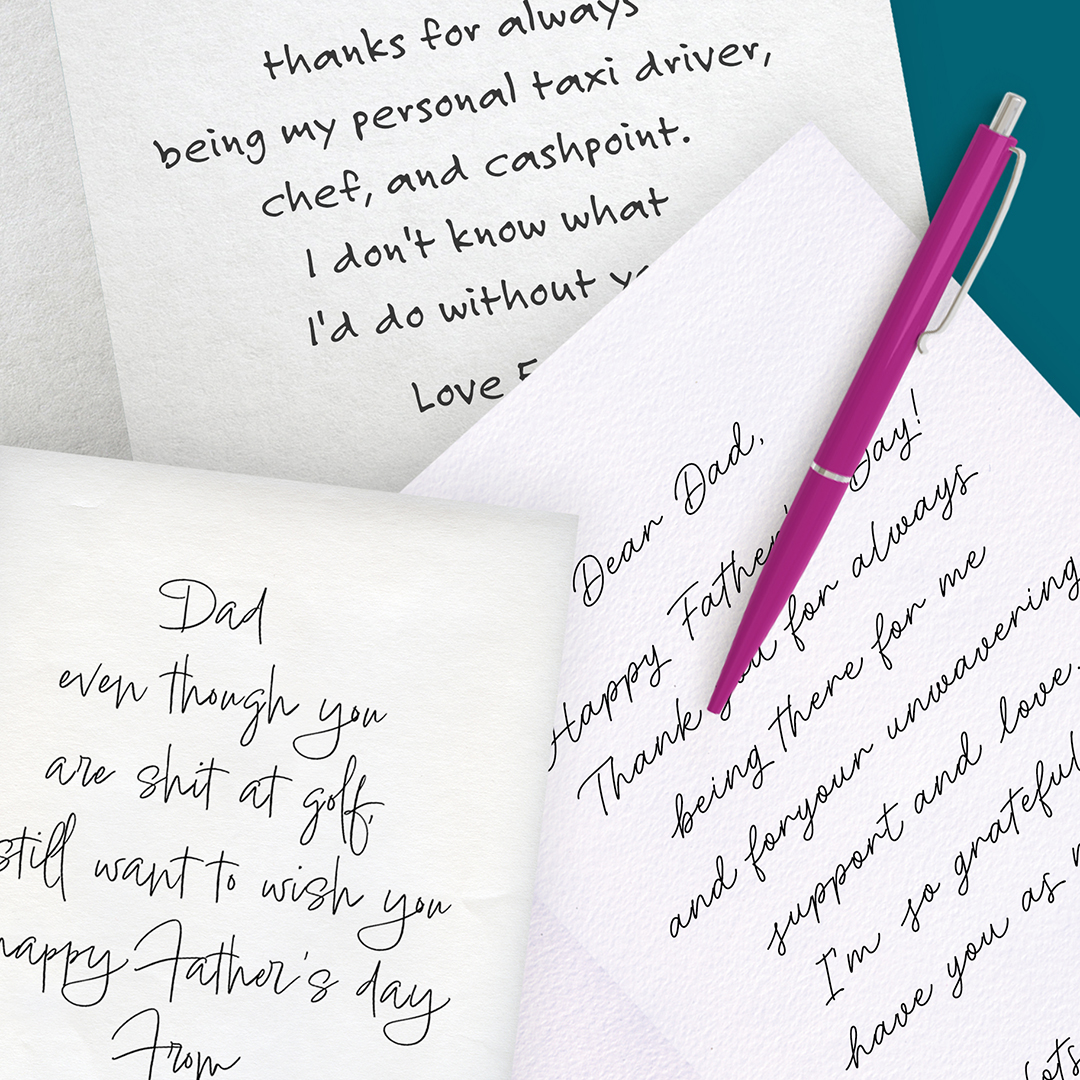 thanks for always
being my personal taxi driver,
chef, and cashpoint.
I don't know what
I'd do without
Love
Dear Dad,
Happy Father's Day!
Thank you for always
being there for me
and foryour unwavering
support and love.
I'm so grateful
have you as
Dad
even though you
are shit at golf,
still want to wish you
happy Father's day
From